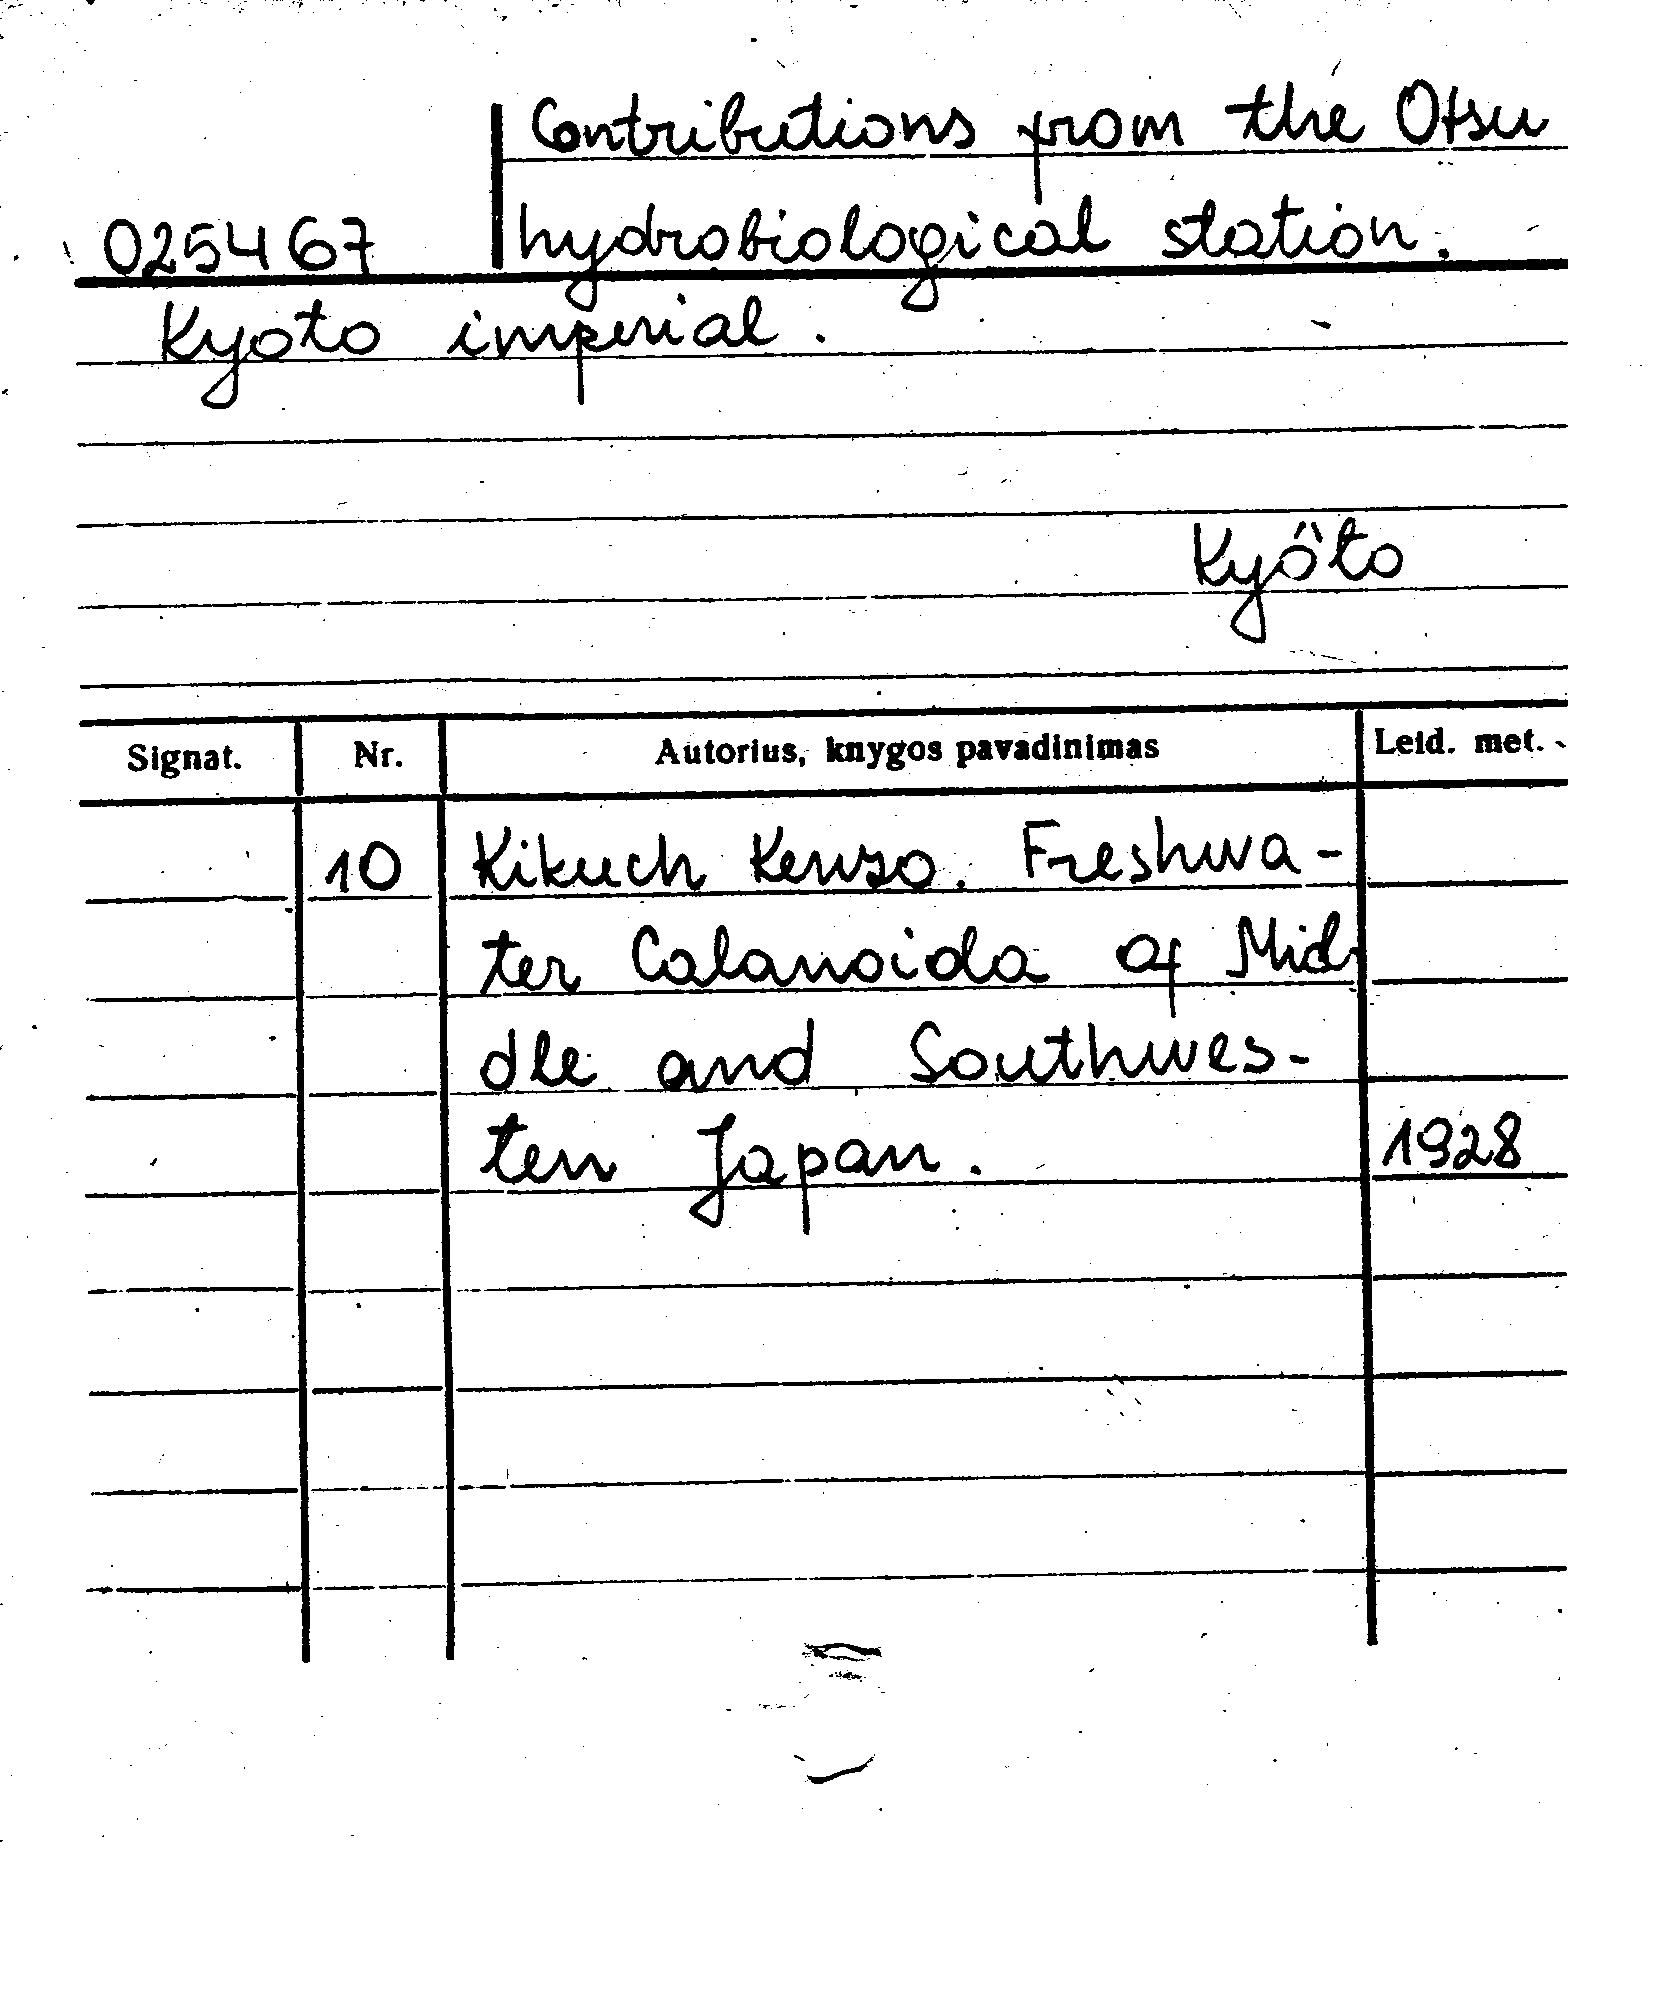 Contributions from the Otsu
025467 hydrobiological station.
Kyoto imperial.
Kyöto
Signat. Nr. Autorius, knygos pavadinimas Leid. met.
10 Kikuch Kenzo. Freshwa-
ter Calanoida of Mid-
dle and Southwes-
tern Japan. 1928